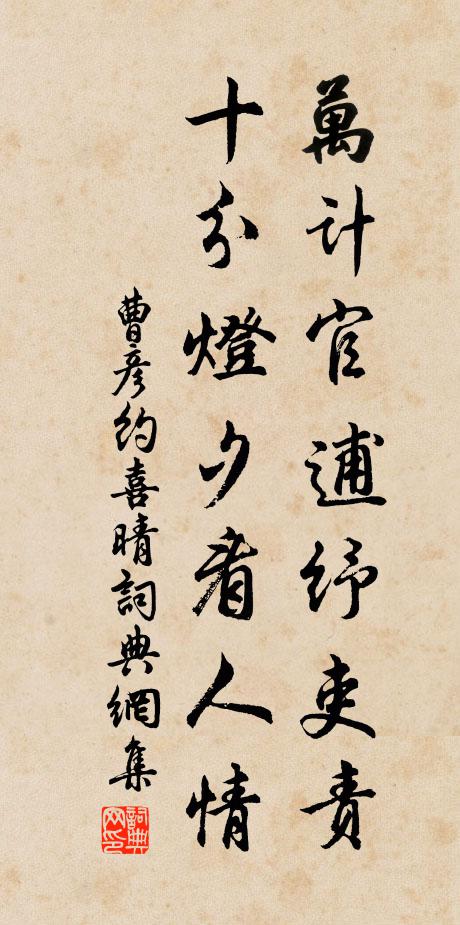 萬計官逋紓吏責
十分燈夕看人情
曹彥約喜晴詞典網集
詞典
网印